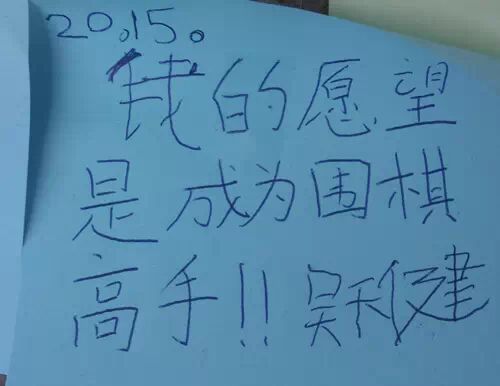 20.15.
我的愿望
是成为围棋
高手!! 吴禾健